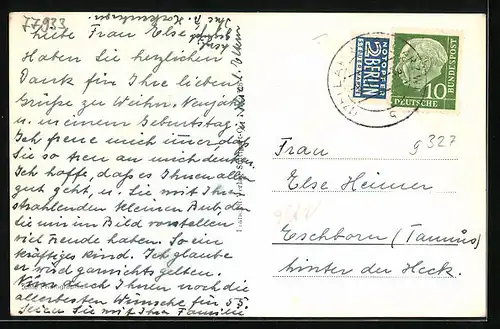 77933
liebe Frau Else
Haben Sie herzlichen
Dank für Ihre lieben
Grüße zu Weihn. Neujahr
u. meinem Geburtstag.
Ich freue mich immer daß
Sie so treu an mich denken
Ich hoffe, daß es Ihnen allen
gut geht, u. Sie mit Ihrem
strahlenden kleinen Bub, den
Sie mir im Bild vorstellen
viel Freude haben. So ein
kräftiges Kind. Ich glaube
er wird garnichts gelten.
Nun auch Ihnen noch die
allerbesten Wünsche für 55.
Seien Sie mit Ihrer Familie
NOTOPFER
2 BERLIN
STEUERMARKE
10
DEUTSCHE
BUNDESPOST
9327
Frau
Else Heimer
Eschborn (Taunus)
hinter der Heck.